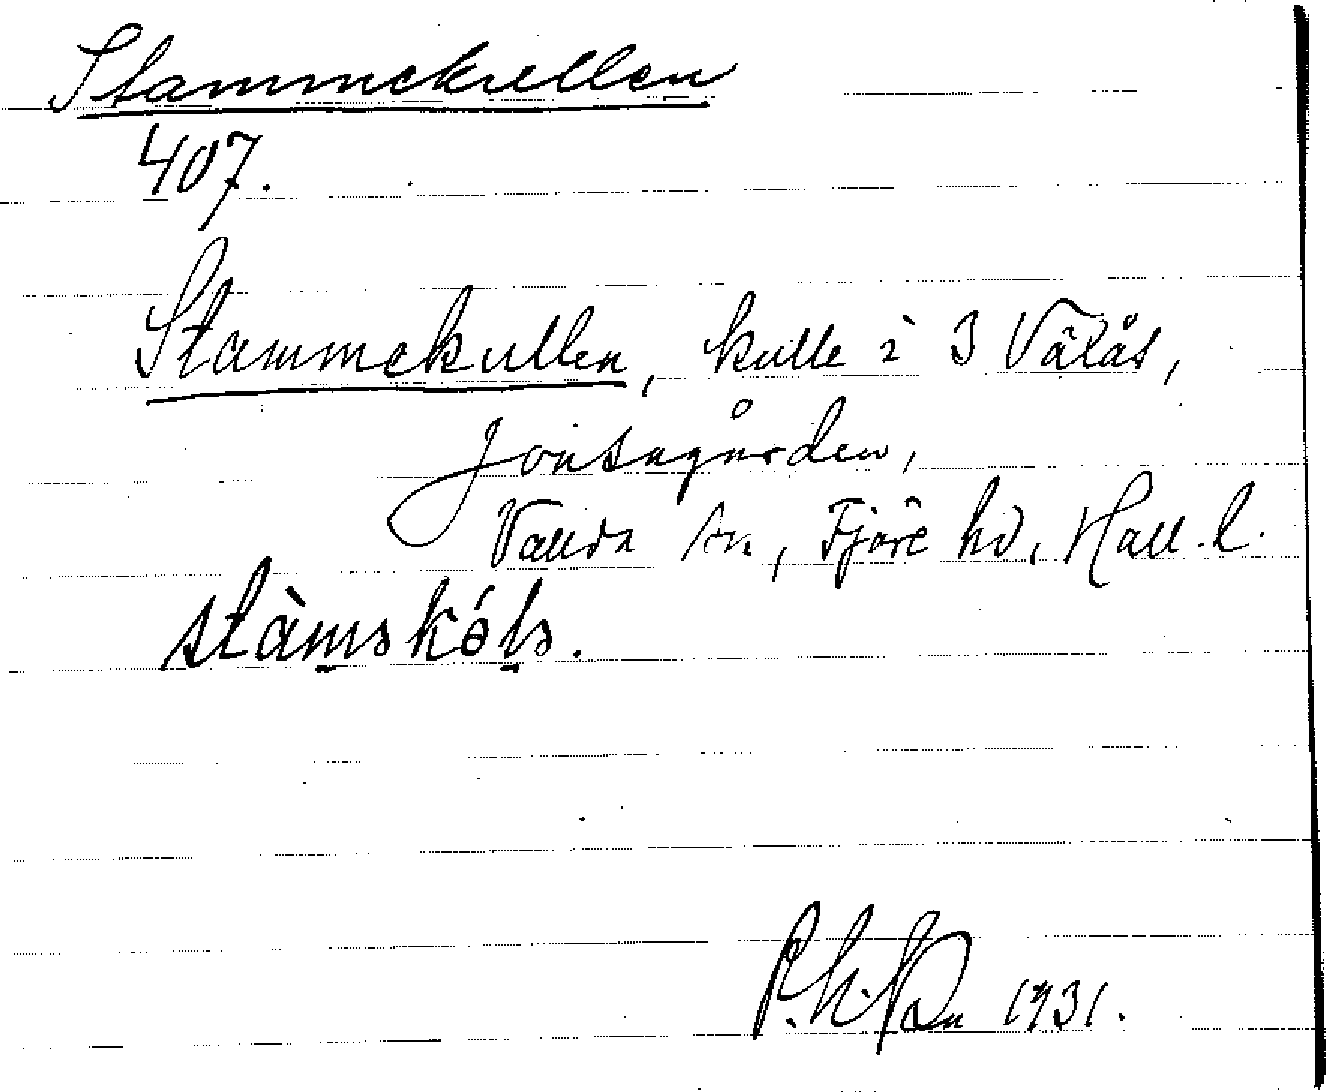 Stammekullen
407.
Stammekullen, kulle i 3 Välås,
Jonsagården,
Vallda sn, Fjäre hd, Hall. l.
stàmskóls.
1931.